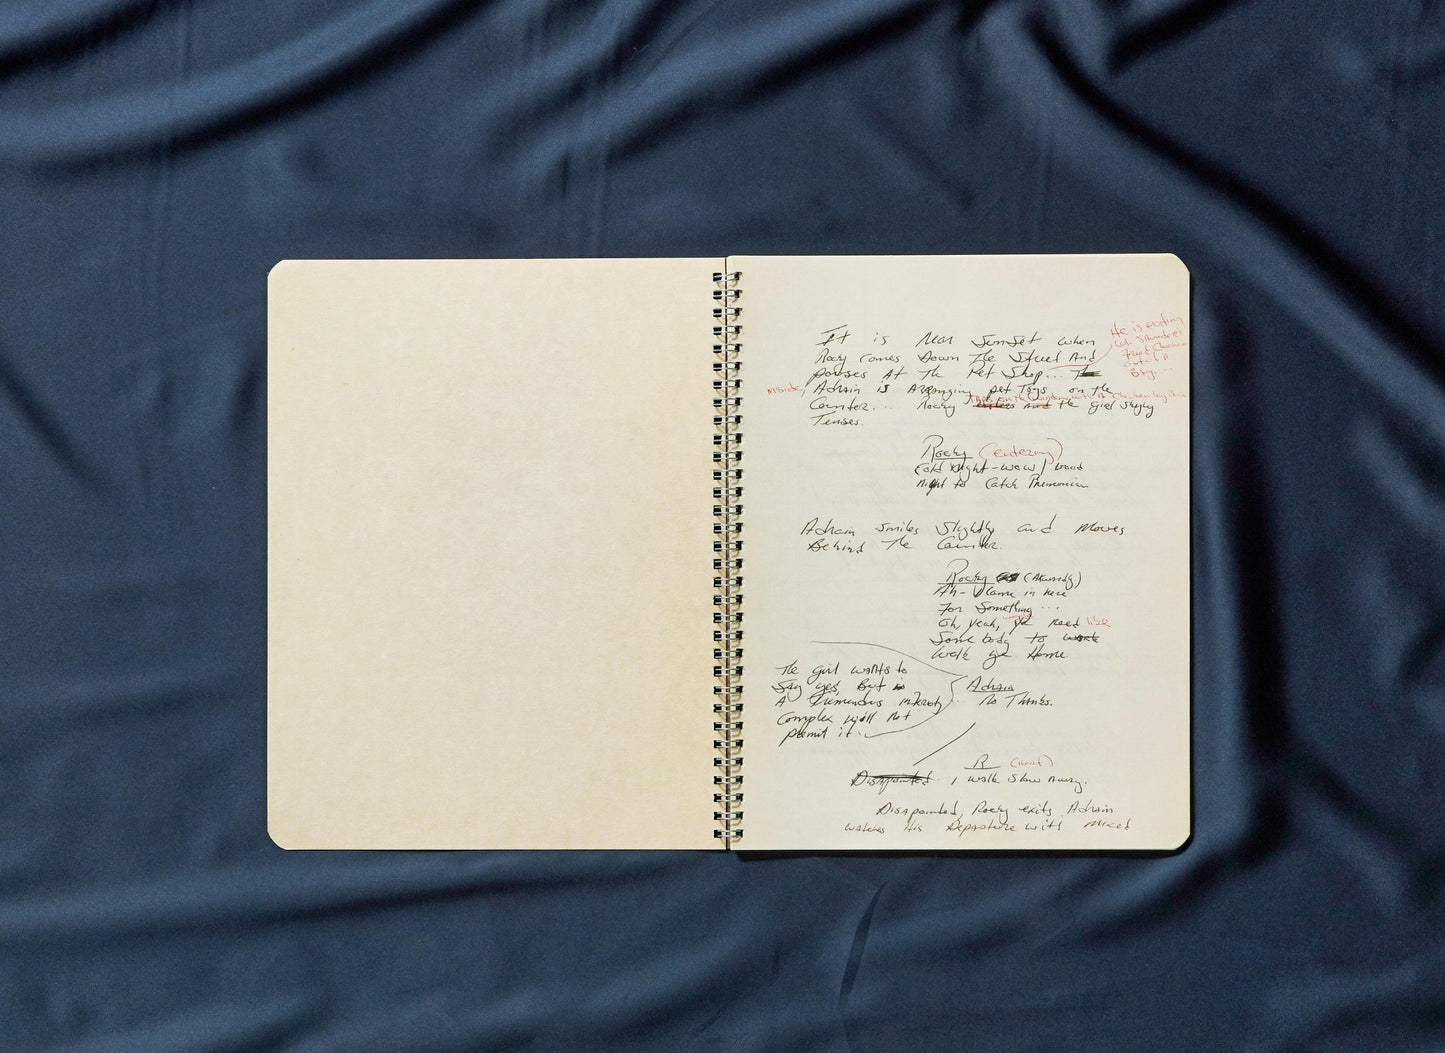 It is Near Sunset when
Rocky Comes Down The Street And
pauses At The Pet Shop...
He is eating
fried Chicken
out of a
Bag...
inside, Adrain is Arranging pet Toys on the
Counter... Rocky enters and the girl shyly
Tenses.
Rocky (entering)
Cold Night - wow! Good
night to Catch Pneumonia
Adrain smiles Slightly and Moves
Behind The Counter.
Rocky (Akwardly)
Ah- I Came in here
For Something...
Oh, yeah, ya need like
Some body to
walk ya Home.
The girl wants to
Say yes, But
A Tremendous
Complex will Not
permit it.
Adrain
... No Thanks.
R (hurt)
Disappointed.. I walk Slow Away.
Disapointed, Rocky exits. Adrain
watches His Departure with Mixed